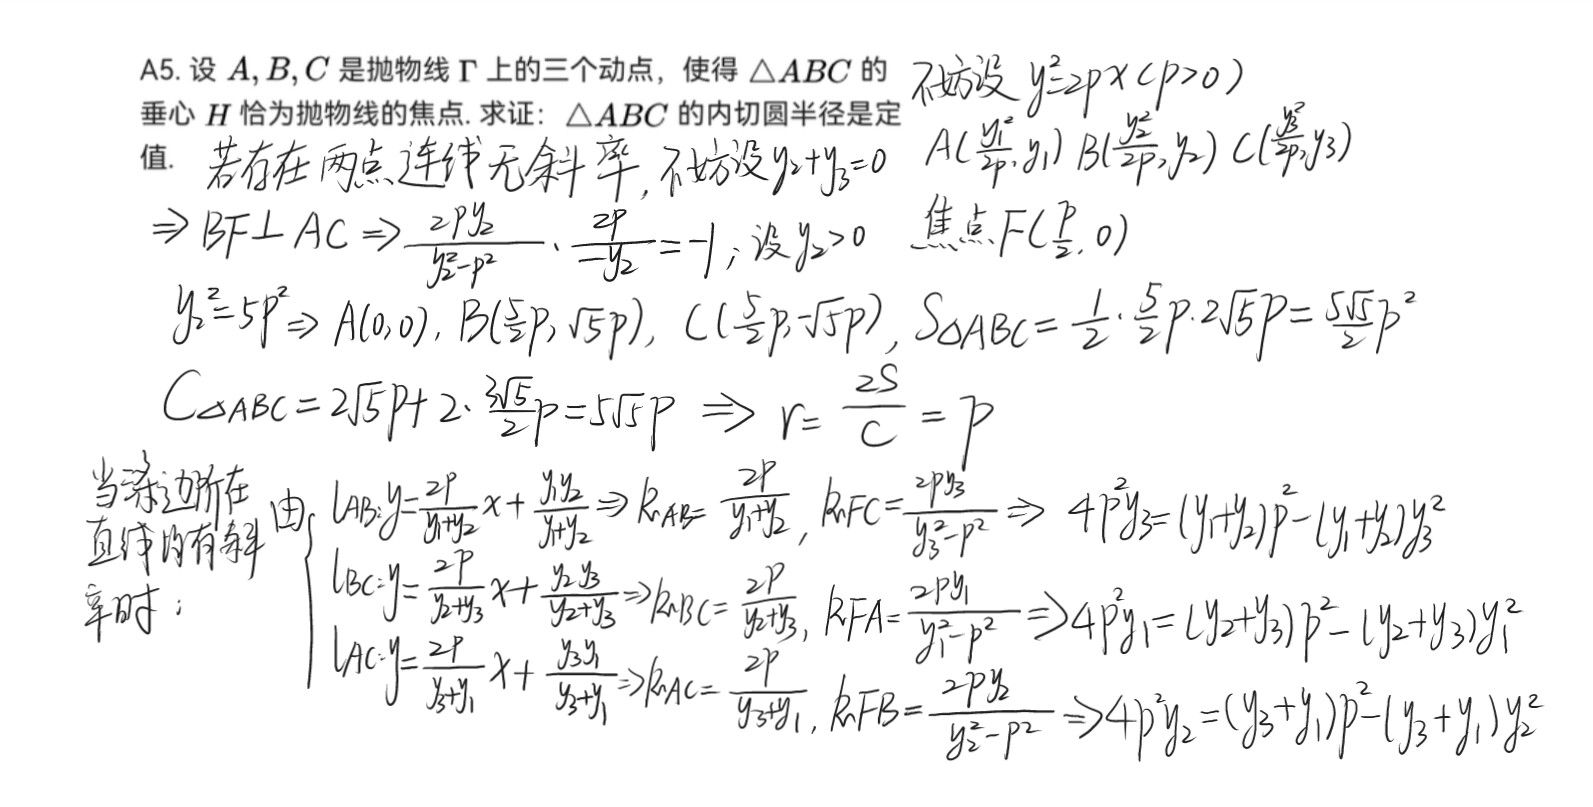 A5. 设 A, B, C 是抛物线 Γ 上的三个动点，使得 △ABC 的
垂心 H 恰为抛物线的焦点. 求证：△ABC 的内切圆半径是定
值.
不妨设 y²=2px (p>0)
A(y₁²/2p, y₁) B(y₂²/2p, y₂) C(y₃²/2p, y₃)
焦点 F(p/2, 0)
若存在两点连线无斜率, 不妨设 y₂+y₃=0
⇒ BF⊥AC ⇒ 2py₂/(y₂²-p²) · 2p/(-y₂) = -1; 设 y₂>0
y₂²=5p² ⇒ A(0,0), B(5/2 p, √5p), C(5/2 p, -√5p), S△ABC = 1/2 · 5/2 p · 2√5p = 5√5/2 p²
C△ABC = 2√5p + 2 · 3√5/2 p = 5√5p ⇒ r = 2S/C = p
当涤边所在
直线均有斜
率时：
由{
lAB: y = 2p/(y₁+y₂) x + y₁y₂/(y₁+y₂) ⇒ kAB = 2p/(y₁+y₂), kFC = 2py₃/(y₃²-p²) ⇒ 4p²y₃ = (y₁+y₂)p² - (y₁+y₂)y₃²
lBC: y = 2p/(y₂+y₃) x + y₂y₃/(y₂+y₃) ⇒ kBC = 2p/(y₂+y₃), kFA = 2py₁/(y₁²-p²) ⇒ 4p²y₁ = (y₂+y₃)p² - (y₂+y₃)y₁²
lAC: y = 2p/(y₃+y₁) x + y₃y₁/(y₃+y₁) ⇒ kAC = 2p/(y₃+y₁), kFB = 2py₂/(y₂²-p²) ⇒ 4p²y₂ = (y₃+y₁)p² - (y₃+y₁)y₂²